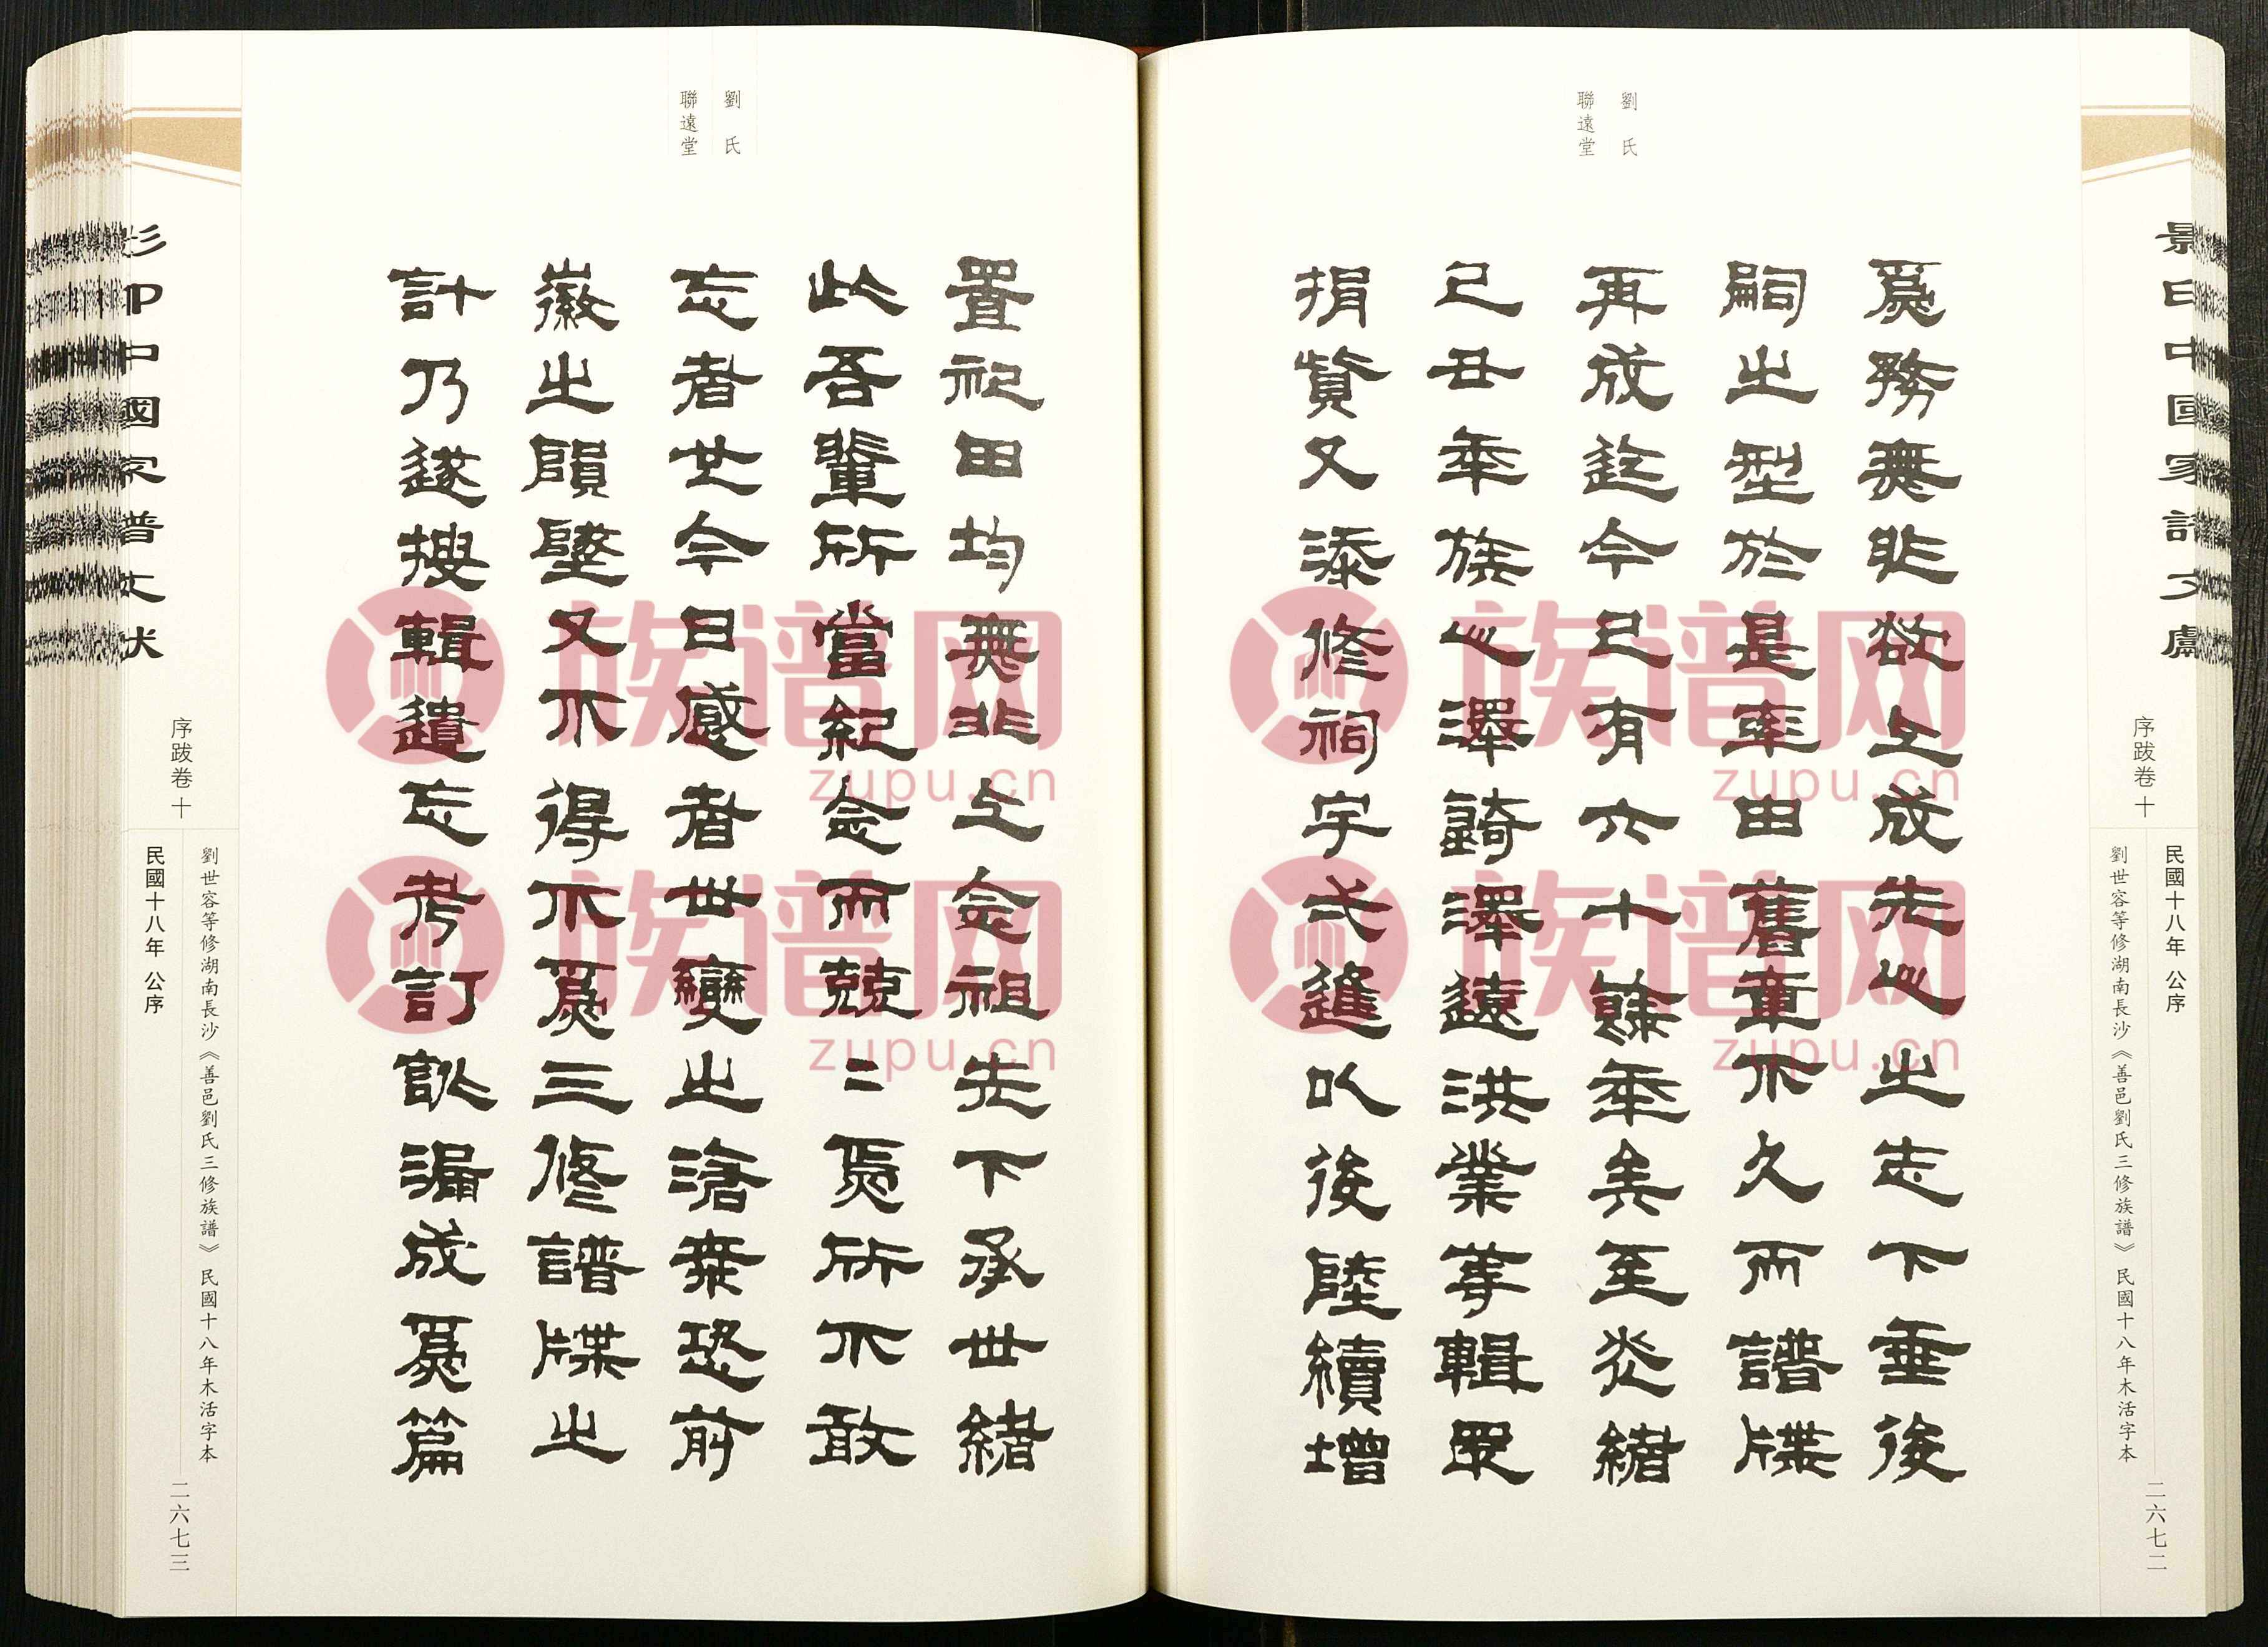 景印中國家譜文獻
序跋卷 十
民國十八年 公序
劉世容等修湖南長沙《善邑劉氏三修族譜》 民國十八年木活字本
二六七二
劉氏
聯遠堂
爲務無非欲上成先公之志下垂後
嗣之型於是率由舊章不久而譜牒
再成迄今已有六十餘年矣至光緒
己丑年族公澤錡澤遠洪業等輯眾
捐貲又添修祠宇弍進以後陸續增
劉氏
聯遠堂
置祀田均無非上念祖先下承世緒
此吾輩所當紀念而兢二焉所不敢
忘者也今日感者世變之滄桑恐前
徽之隕墜又不得不爲三修譜牒之
計乃遂搜輯遺忘考訂訛漏成爲篇
景印中國家譜文獻
序跋卷 十
劉世容等修湖南長沙《善邑劉氏三修族譜》 民國十八年木活字本
民國十八年 公序
二六七三
族谱网
zupu.cn
族谱网
zupu.cn
族谱网
zupu.cn
族谱网
zupu.cn